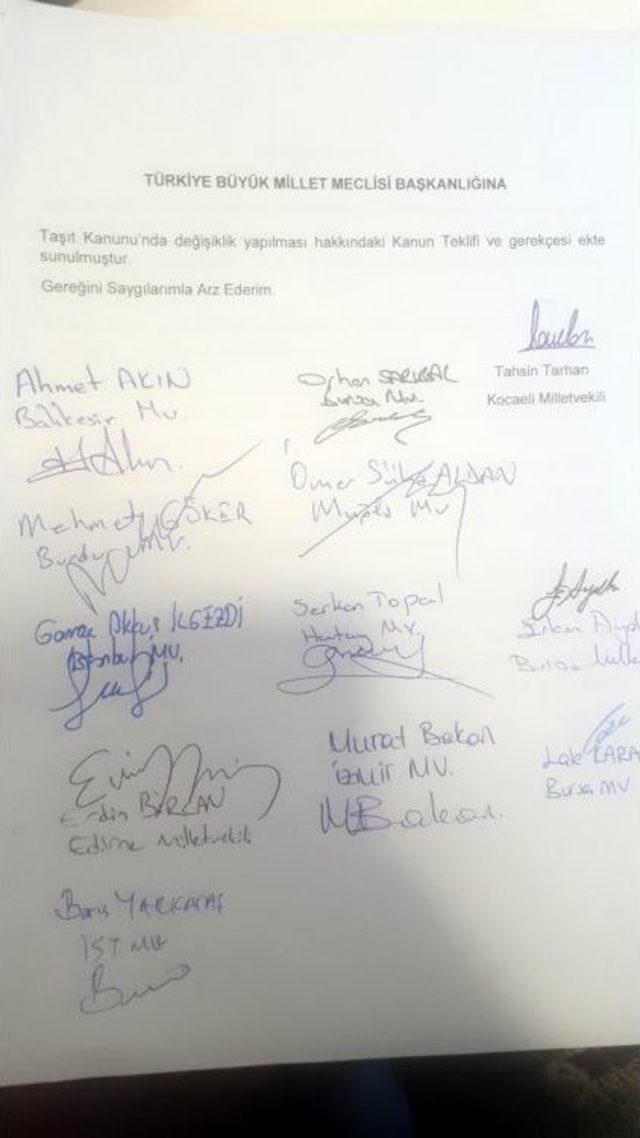 TÜRKİYE BÜYÜK MİLLET MECLİSİ BAŞKANLIĞINA
Taşıt Kanunu'nda değişiklik yapılması hakkındaki Kanun Teklifi ve gerekçesi ekte
sunulmuştur.
Gereğini Saygılarımla Arz Ederim.
Tahsin Tarhan
Kocaeli Milletvekili
Ahmet AKIN
Balıkesir Mv.
Orhan SARIBAL
Bursa Mv.
Mehmet GÖKER
Burdur MV.
Ömer Süha ALDAN
Muğla Mv
Gamze Akkuş İLGEZDİ
İstanbul MV.
Serkan Topal
Hatay MV.
Bursa
Erdin BİRCAN
Edirne Milletvekili
Murat Bakan
İZMİR MV.
MBakan.
Lale KARA
Bursa MV
Barış YARKADAŞ
İST MV